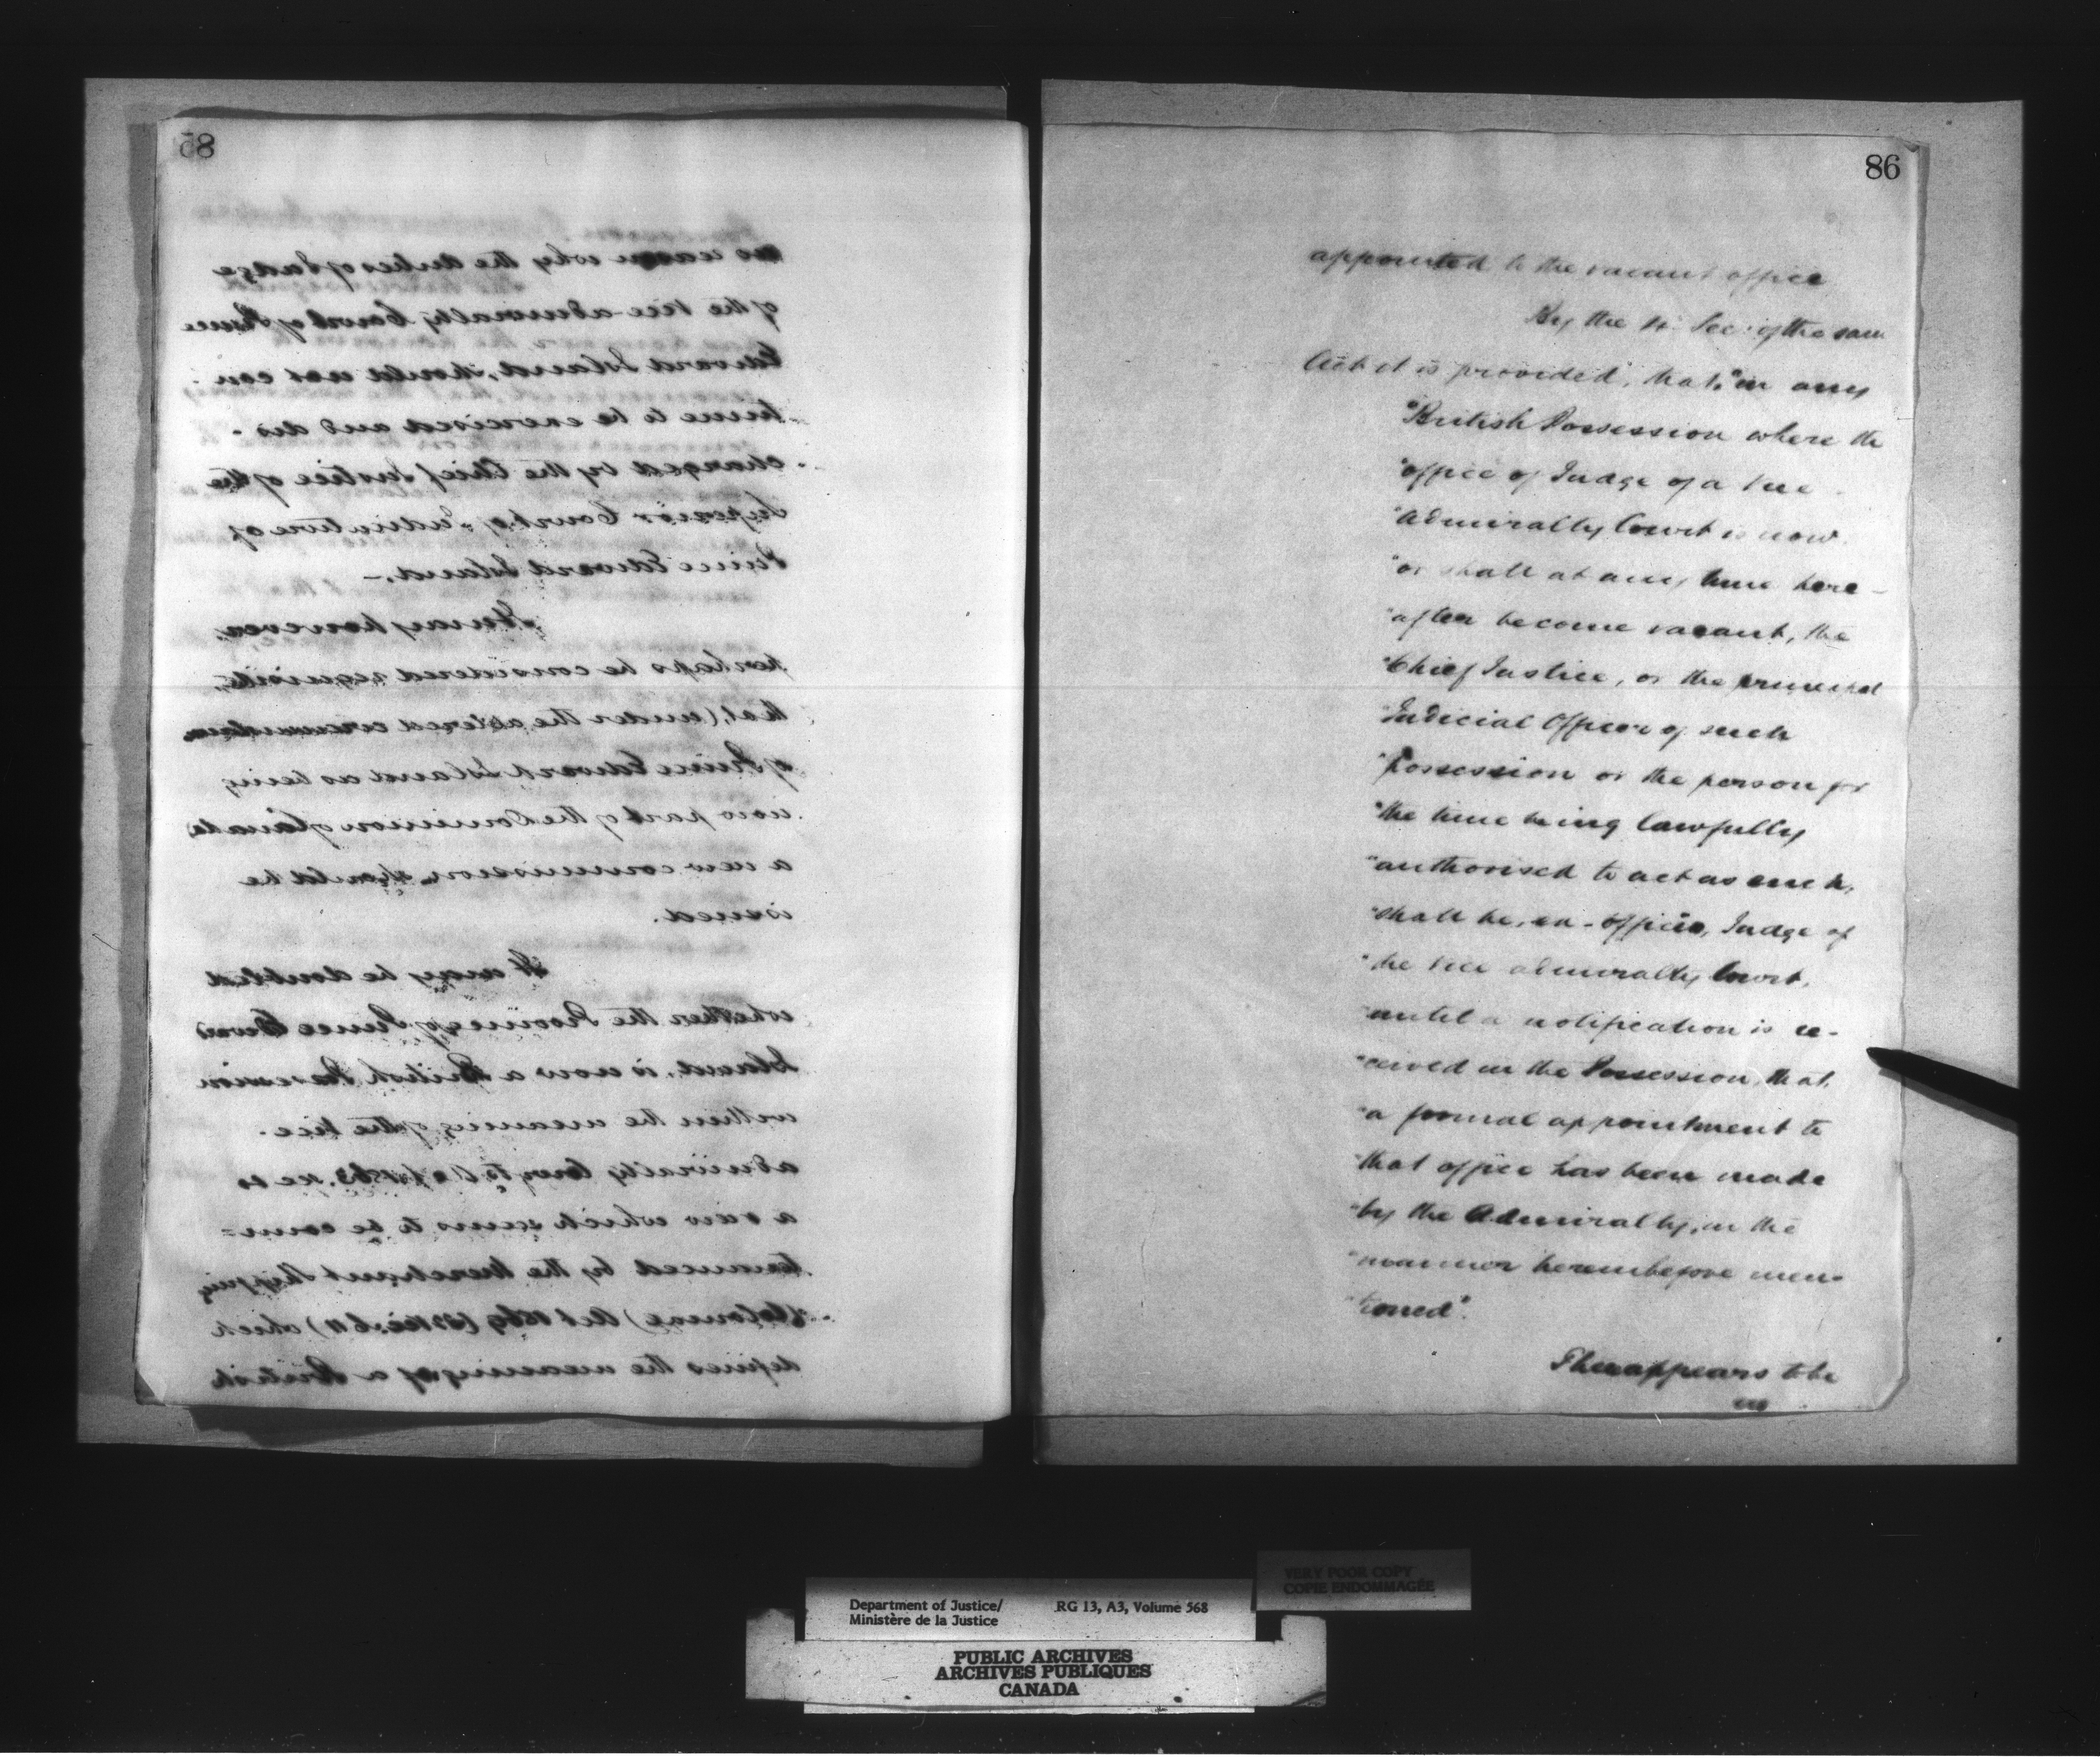 85
no reason why the duties of Judge
of the Vice-admiralty Court of Prince
Edward Island, should not con-
tinue to be exercised and dis-
charged by the Chief Justice of the
Superior Court of Judicature of
Prince Edward Island.-
It may however
perhaps be considered requisite,
that, (under the altered circumstances
of Prince Edward Island as being
now part of the Dominion of Canada)
a new commission should be
issued.
It may be doubted
whether the Province of Prince Edward
Island, is now a British Possession
within the meaning of the Vice-
admiralty 1863,
a view which seems to be coun=
tenanced by the Merchant Shipping
(Colonial) Act 1869 (32 Vic: c 11) which
defines the meaning of a British
86
appointed to the vacant office
By the 4 Sec: of the same
Act it is provided, that, "in any
"British Possession where the
"office of Judge of a Vice-
"Admiralty Court is now
"or shall at any time here-
"after become vacant, the
"Chief Justice, or the principal
"Judicial Officer of such
"Possession or the person for
"the time being lawfully
"authorised to act as such,
"shall be, ex-officio, Judge of
"the Vice admiralty Court,
"until a notification is re-
"ceived in the Possession, that,
"a formal appointment to
"that office has been made
"by the Admiralty, in the
"manner hereinbefore men-
"tioned".
There appears to be
no
VERY POOR COPY
COPIE ENDOMMAGÉE
Department of Justice/ RG 13, A3, Volume 568
Ministère de la Justice
PUBLIC ARCHIVES
ARCHIVES PUBLIQUES
CANADA